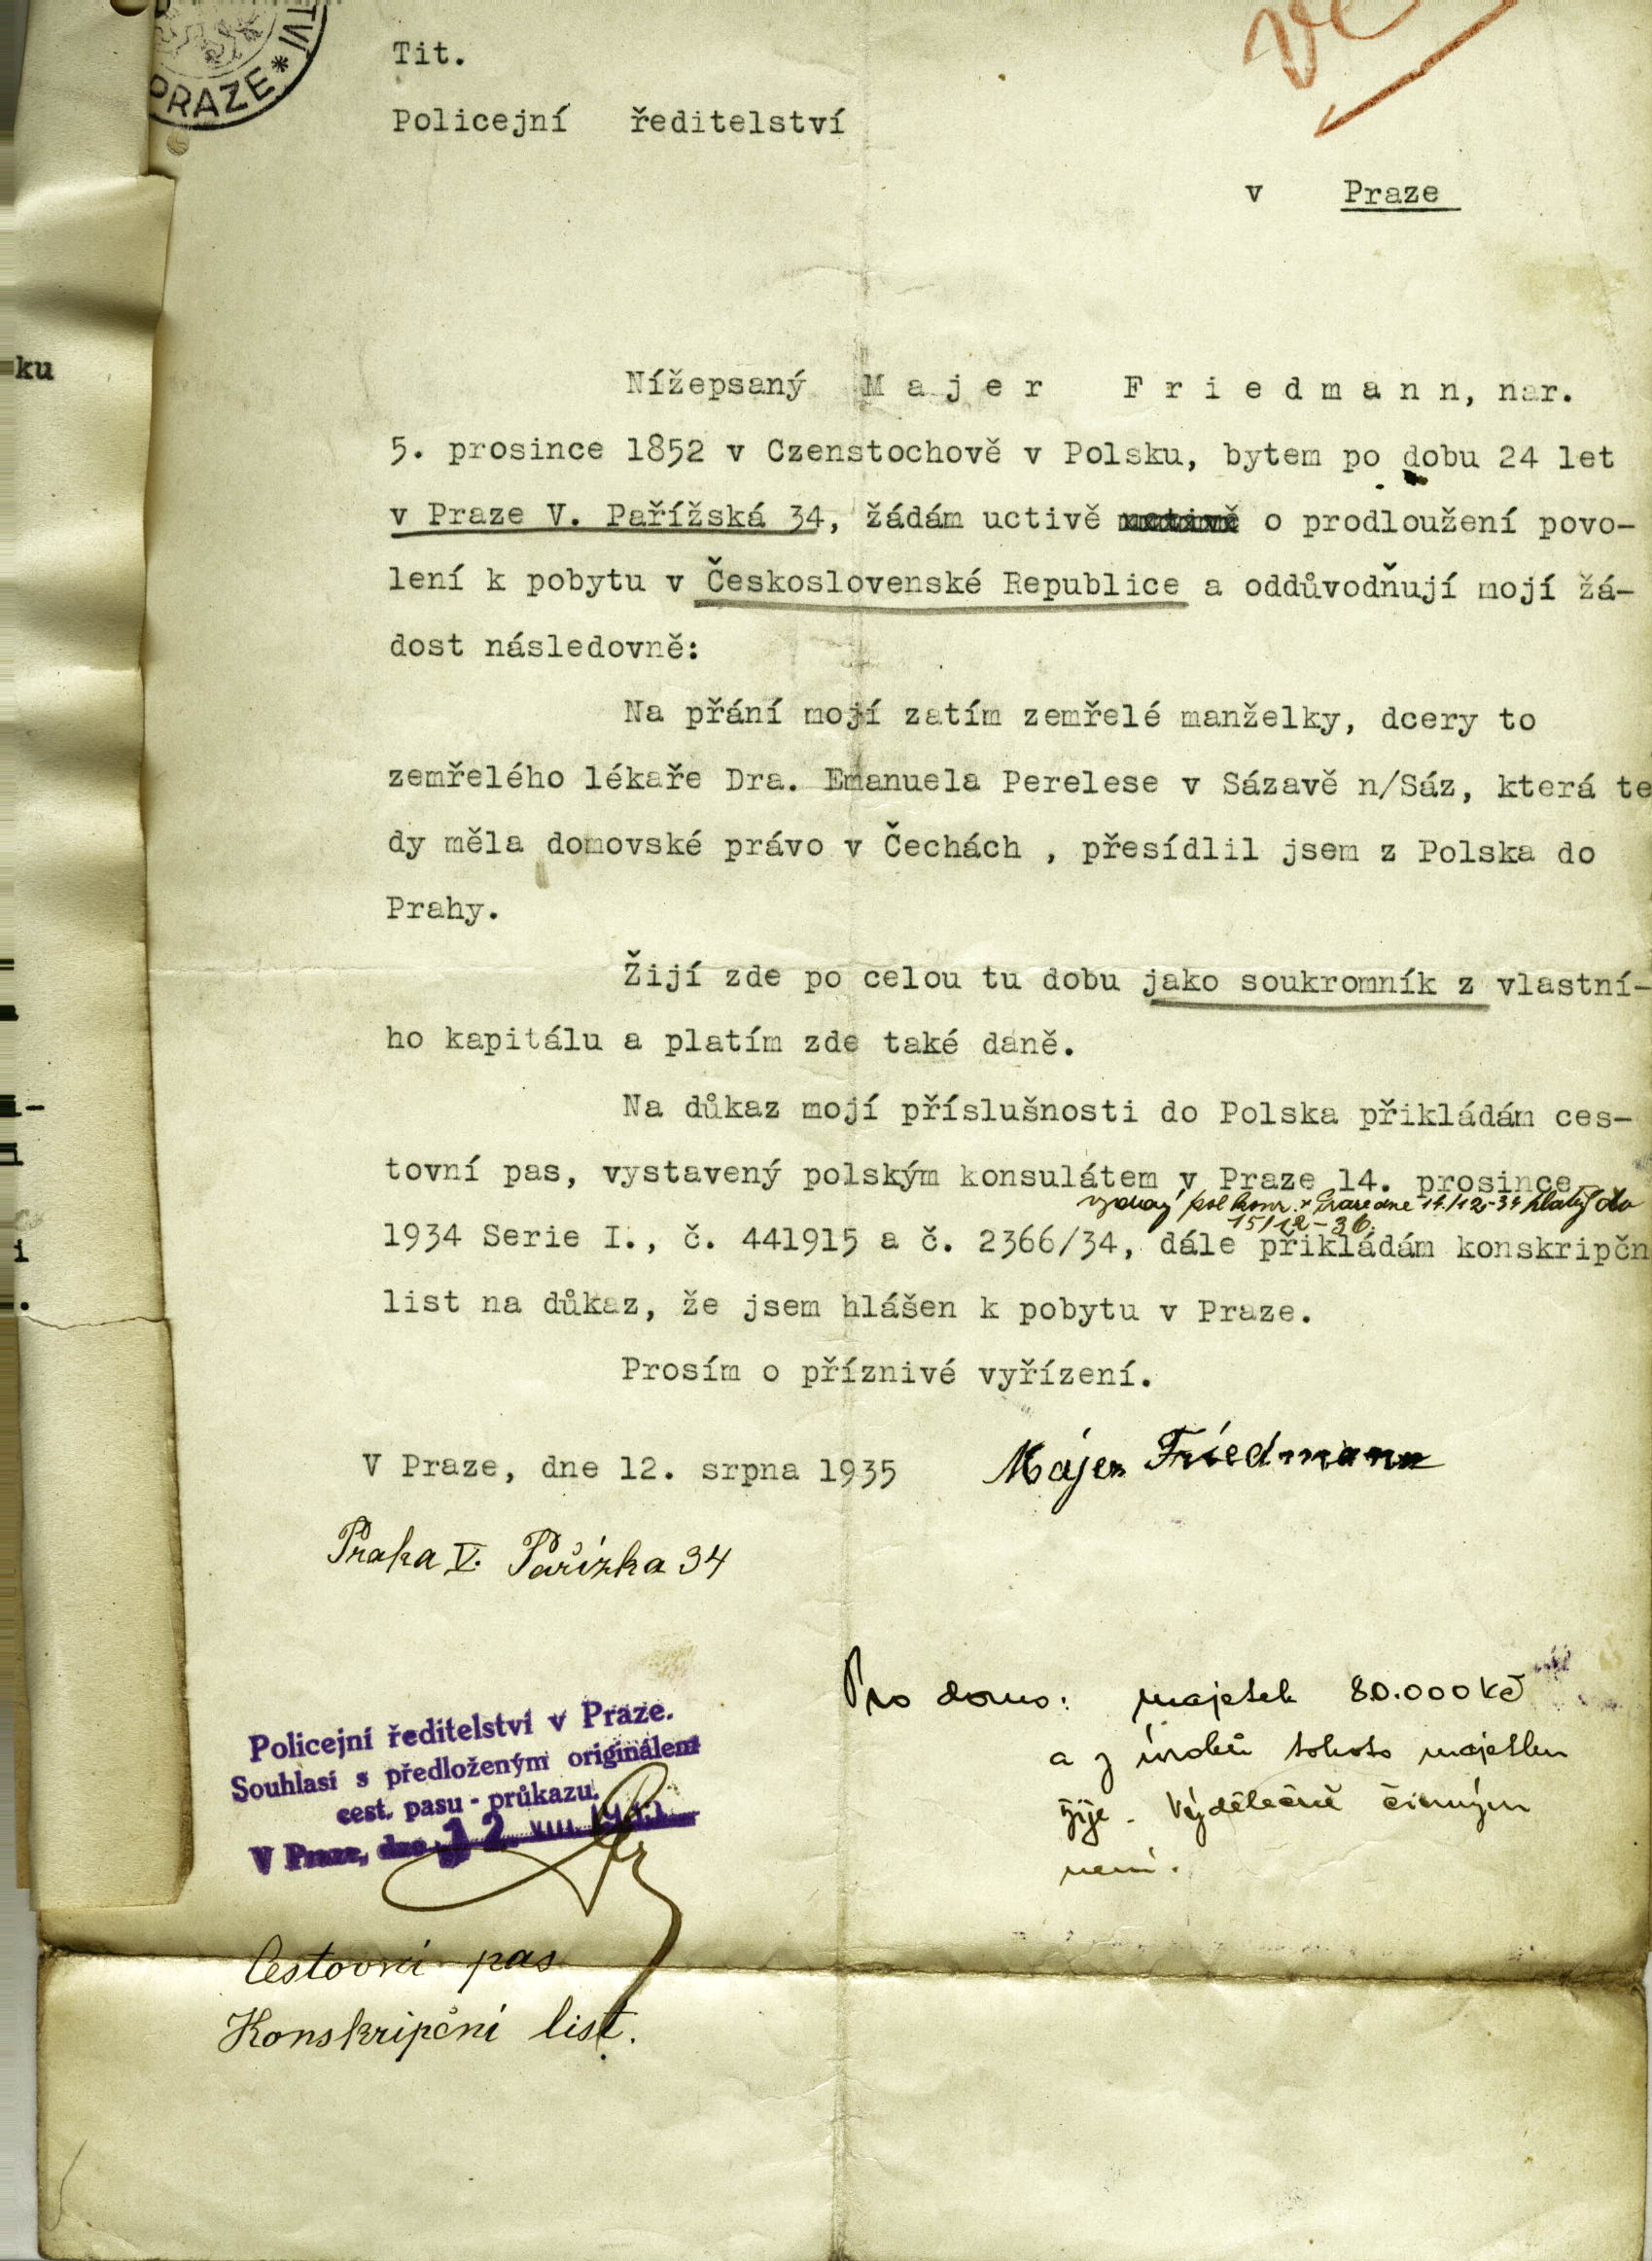 TVÍ * PRAZE *
Tit.
Policejní ředitelství
v Praze
ku
Nížepsaný M a j e r F r i e d m a n n, nar.
5. prosince 1852 v Czenstochově v Polsku, bytem po dobu 24 let
v Praze V. Pařížská 34, žádám uctivě uctivě o prodloužení povo-
lení k pobytu v Československé Republice a oddůvodňují mojí žá-
dost následovně:
Na přání mojí zatím zemřelé manželky, dcery to
zemřelého lékaře Dra. Emanuela Perelese v Sázavě n/Sáz, která te
dy měla domovské právo v Čechách , přesídlil jsem z Polska do
Prahy.
Žijí zde po celou tu dobu jako soukromník z vlastní-
ho kapitálu a platím zde také daně.
Na důkaz mojí příslušnosti do Polska přikládám ces-
tovní pas, vystavený polským konsulátem v Praze 14. prosince
vydaný pol konz. v Praze dne 14./12-34 platný do
15/12-36.
1934 Serie I., č. 441915 a č. 2366/34, dále přikládám konskripčn
list na důkaz, že jsem hlášen k pobytu v Praze.
Prosím o příznivé vyřízení.
V Praze, dne 12. srpna 1935
Majer Friedmann
Praha V. Pařížka 34
Pro domo: majetek 80.000 Kč
a z úroků tohoto majetku
žije. Výdělečně činným
není.
Policejní ředitelství v Praze.
Souhlasí s předloženým originálem
cest. pasu - průkazu.
V Praze, dne 12. VIII. 1935
Cestovní pas
Konskripční list.